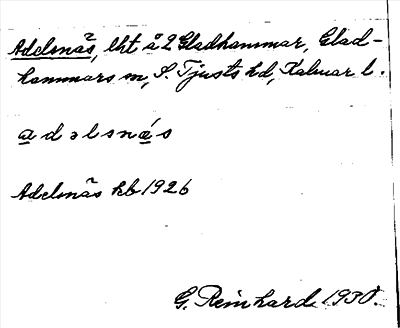 Adelsnäs, lht å 2 Gladhammar, Glad-
hammars sn, S. Tjusts hd, Kalmar l.
a d ə l s n ä́ s
Adelsnäs kb 1926
G. Reinhard 1930.